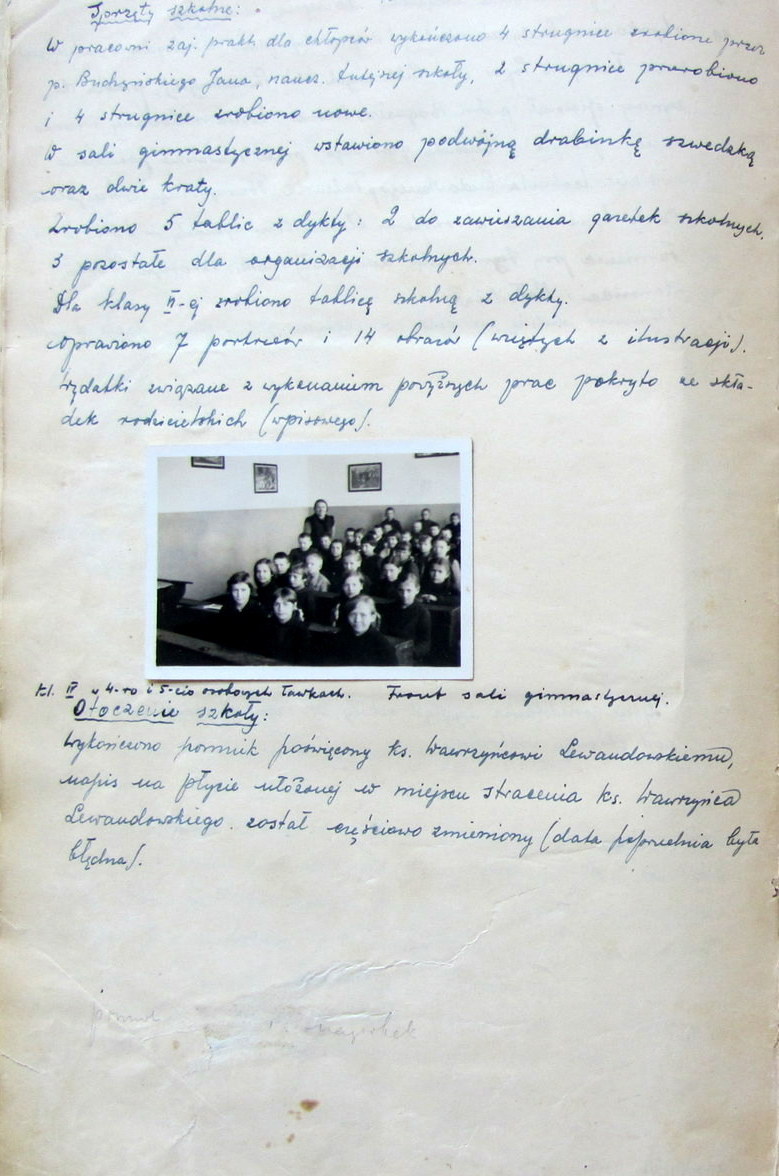 Sprzęty szkolne:
W pracowni zaj. prakt. dla chłopców wykończono 4 strugnice zrobione przez
p. Buchzyńskiego Jana, naucz. tutejszej szkoły, 2 strugnice przerobiono
i 4 strugnice zrobiono nowe.
W sali gimnastycznej wstawiono podwójną drabinkę szwedzką
oraz dwie kraty.
Zrobiono 5 tablic z dykty: 2 do zawieszania gazetek szkolnych,
3 pozostałe dla organizacji szkolnych.
Dla klasy II-ej zrobiono tablicę szkolną z dykty.
Oprawiono 7 portretów i 14 obrazów (wziętych z ilustracji).
Wydatki związane z wykonaniem powyższych prac pokryto ze skła-
dek rodzicielskich (wpisowego).
kl. IV w 4-ro i 5-cio osobowych ławkach. Front sali gimnastycznej.
Otoczenie szkoły:
Wykończono pomnik poświęcony ks. Wawrzyńcowi Lewandowskiemu,
napis na płycie ułożonej w miejscu stracenia ks. Wawrzyńca
Lewandowskiego został częściowo zmieniony (data poprzednia była
błędna).